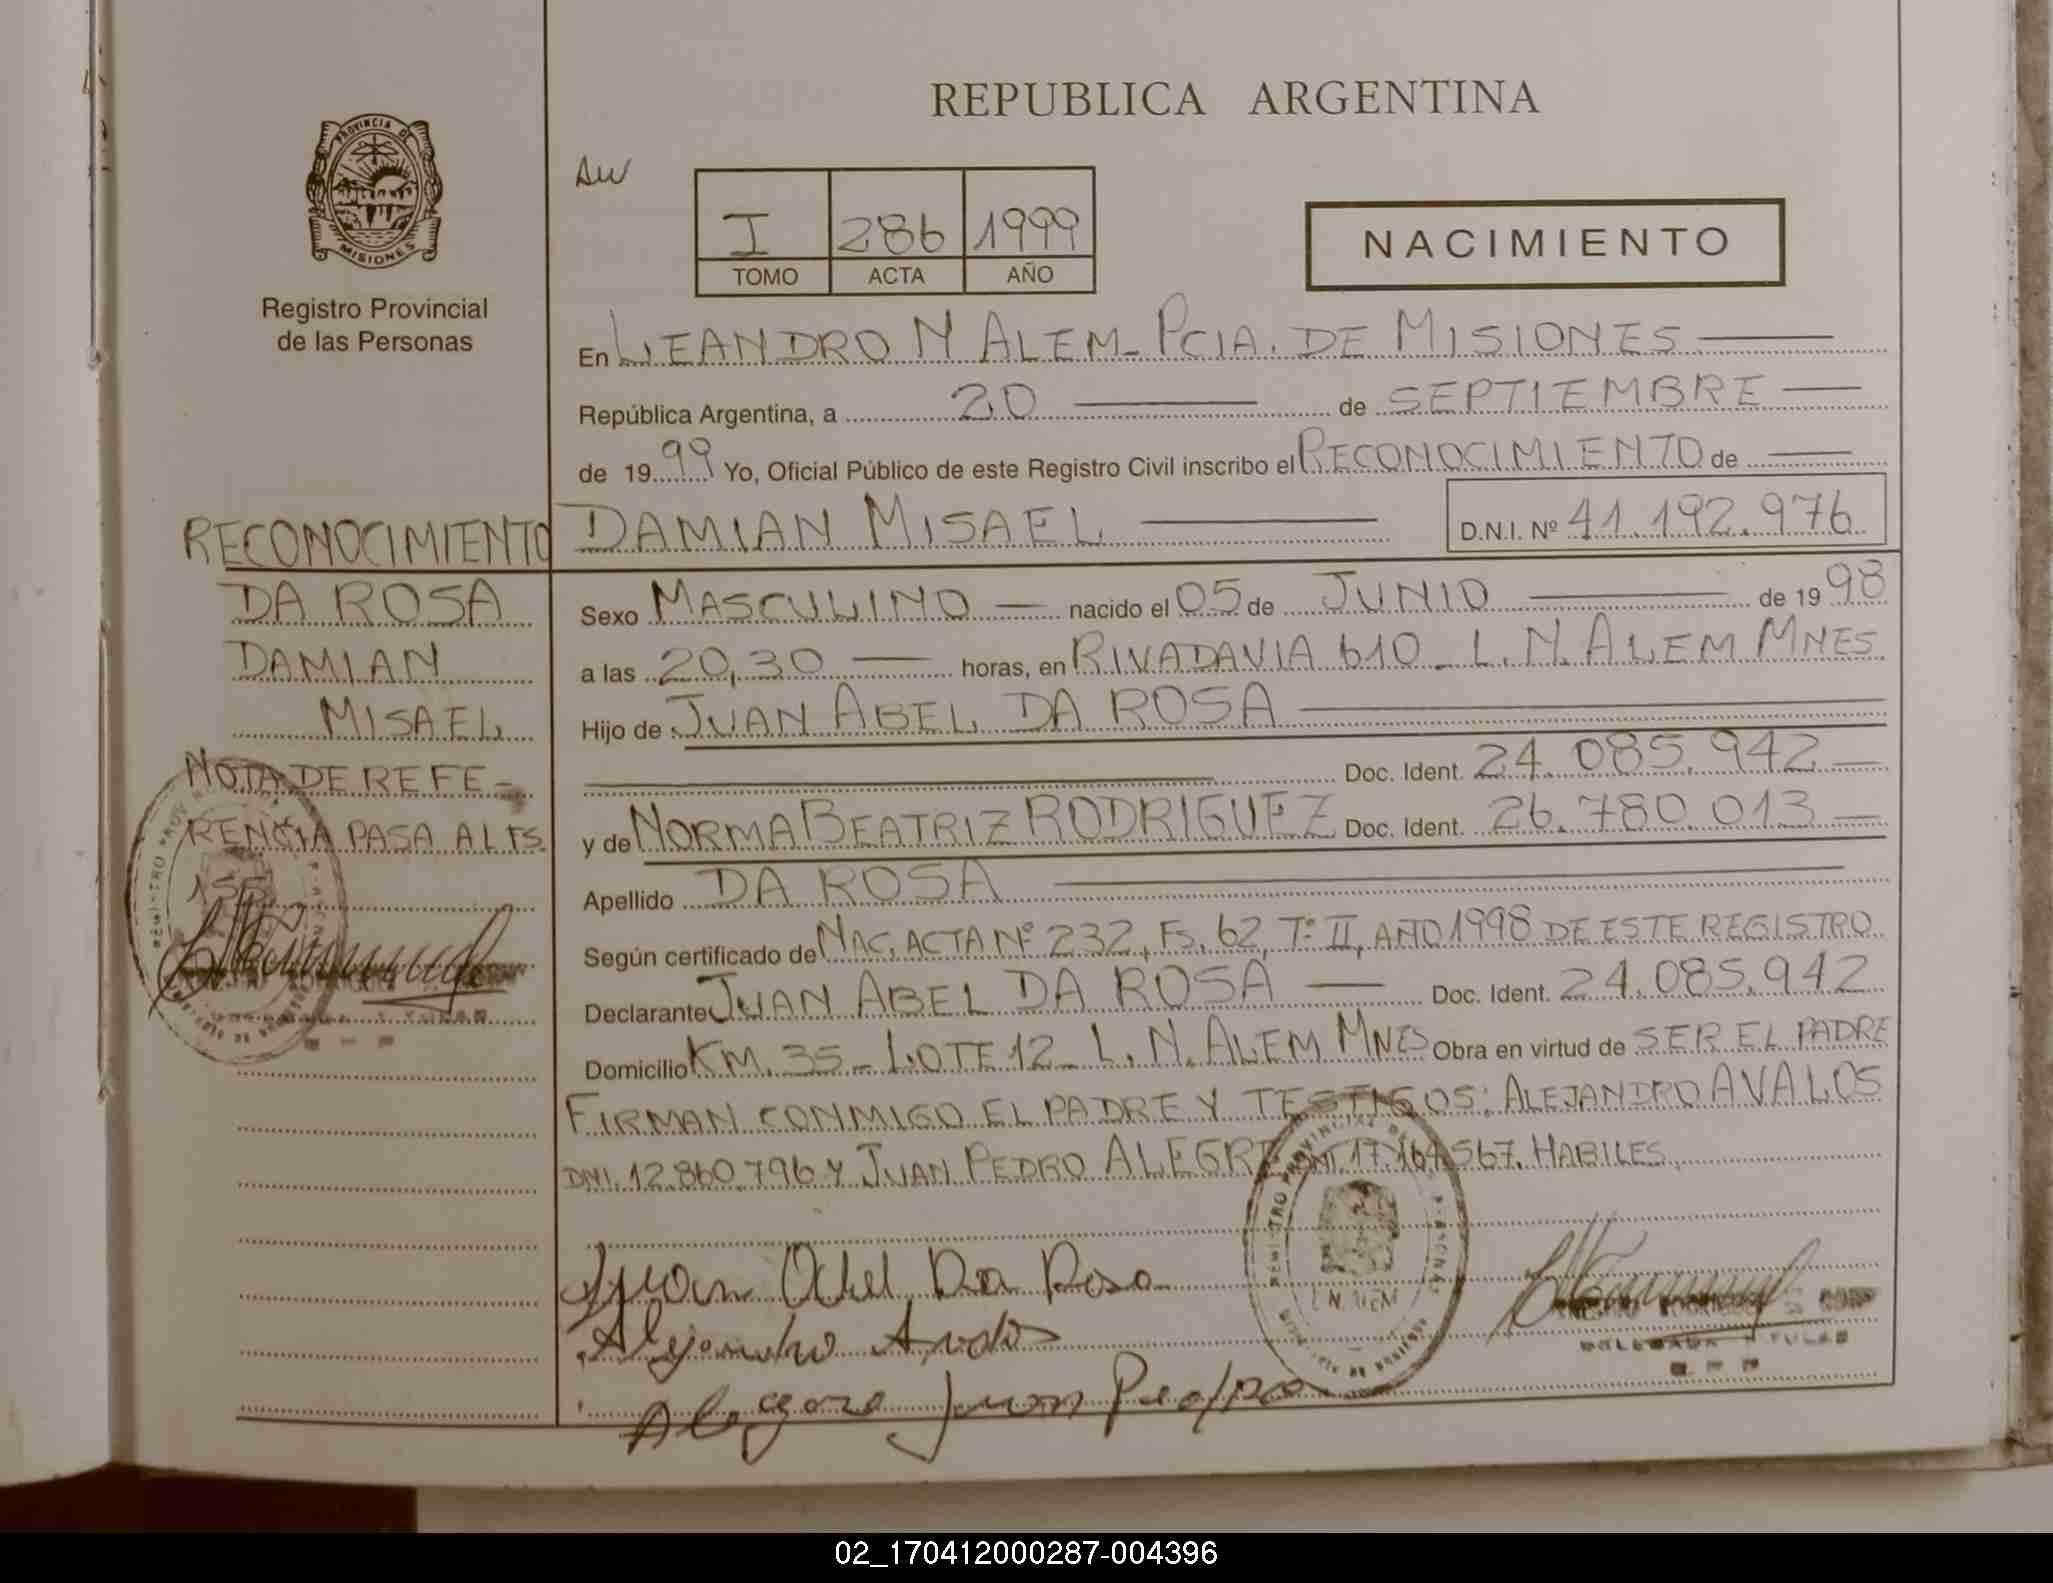 REPUBLICA ARGENTINA
PROVINCIA DE
MISIONES
Registro Provincial
de las Personas
I 286 1999
TOMO ACTA AÑO
NACIMIENTO
En LEANDRO N ALEM_ PCIA. DE MISIONES
República Argentina, a 20 de SEPTIEMBRE
de 1999 Yo, Oficial Público de este Registro Civil inscribo el RECONOCIMIENTO de
DAMIAN MISAEL D.N.I. Nº 41.192.976
Sexo MASCULINO nacido el 05 de JUNIO de 1998
a las 20,30 horas, en RIVADAVIA 610_ L.N. ALEM MNES.
Hijo de JUAN ABEL DA ROSA
Doc. Ident. 24.085.942
y de NORMA BEATRIZ RODRIGUEZ Doc. Ident. 26.780.013
Apellido DA ROSA
Según certificado de NAC. ACTA Nº 232, FS. 62, Tº II, AÑO 1998 DE ESTE REGISTRO
Declarante JUAN ABEL DA ROSA Doc. Ident. 24.085.942
Domicilio KM. 35_ LOTE 12_ L.N. ALEM MNES Obra en virtud de SER EL PADRE
FIRMAN CONMIGO EL PADRE Y TESTIGOS: ALEJANDRO AVALOS
DNI. 12.860.796 Y JUAN PEDRO ALEGRE DNI. 17.164.567. HABILES.
Juan Abel Da Rosa
Alejandro Avalos
Juan Pedro
L.N. ALEM
RECONOCIMIENTO
DA ROSA
DAMIAN
MISAEL
NOTA DE REFE-
RENCIA PASA AL FS.
155
02_170412000287-004396